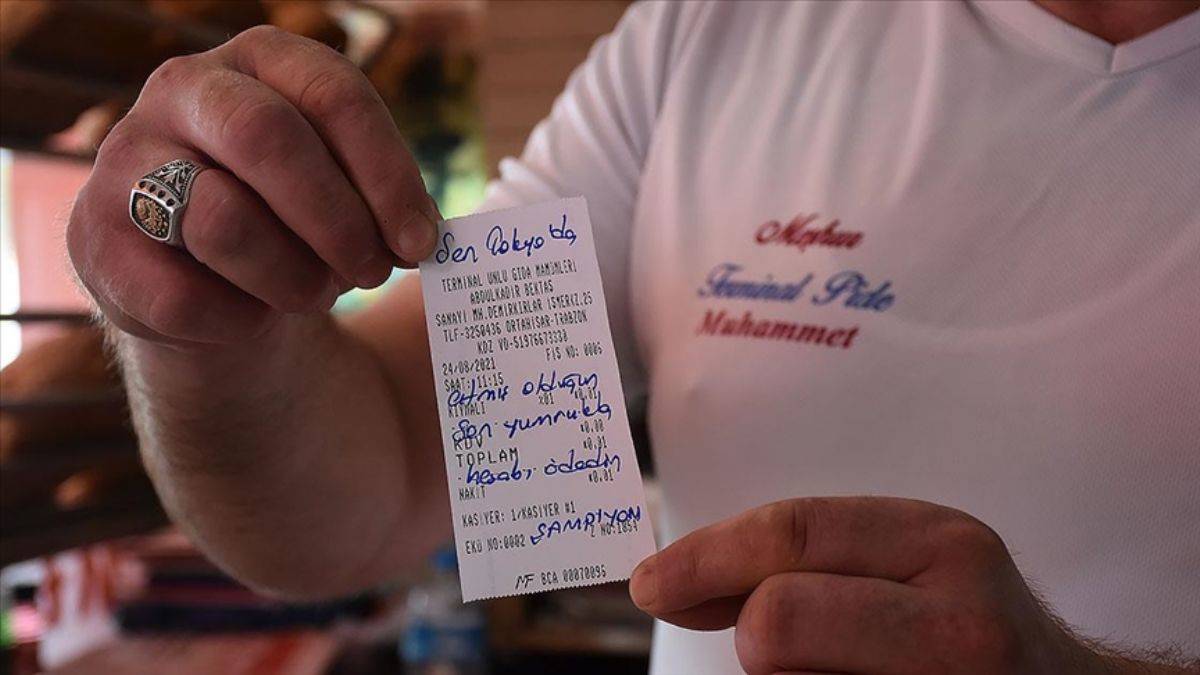 Sen Tokyo'da
TERMINAL UNLU GIDA MAMÜMLERİ
ABDULKADİR BEKTAS
SANAYİ MH.DEMİRKIRLAR ISMERKZ.25
TLF-3250436 ORTAHİSAR-TRABZON
KDZ VD-51976673330
24/08/2021 FİS NO: 0006
SAAT: 11:15
atmış olduğun
KIYMALI %01 *0.01
Son yumrukla
KDV *0.00
TOPLAM *0.01
hesabı ödedin
NAKİT *0.01
KASİYER: 1/KASİYER #1
ŞAMPİYON
EKÜ NO:0002 Z NO:1854
MF BCA 00070095
Meyhun
Terminal Pide
Muhammet